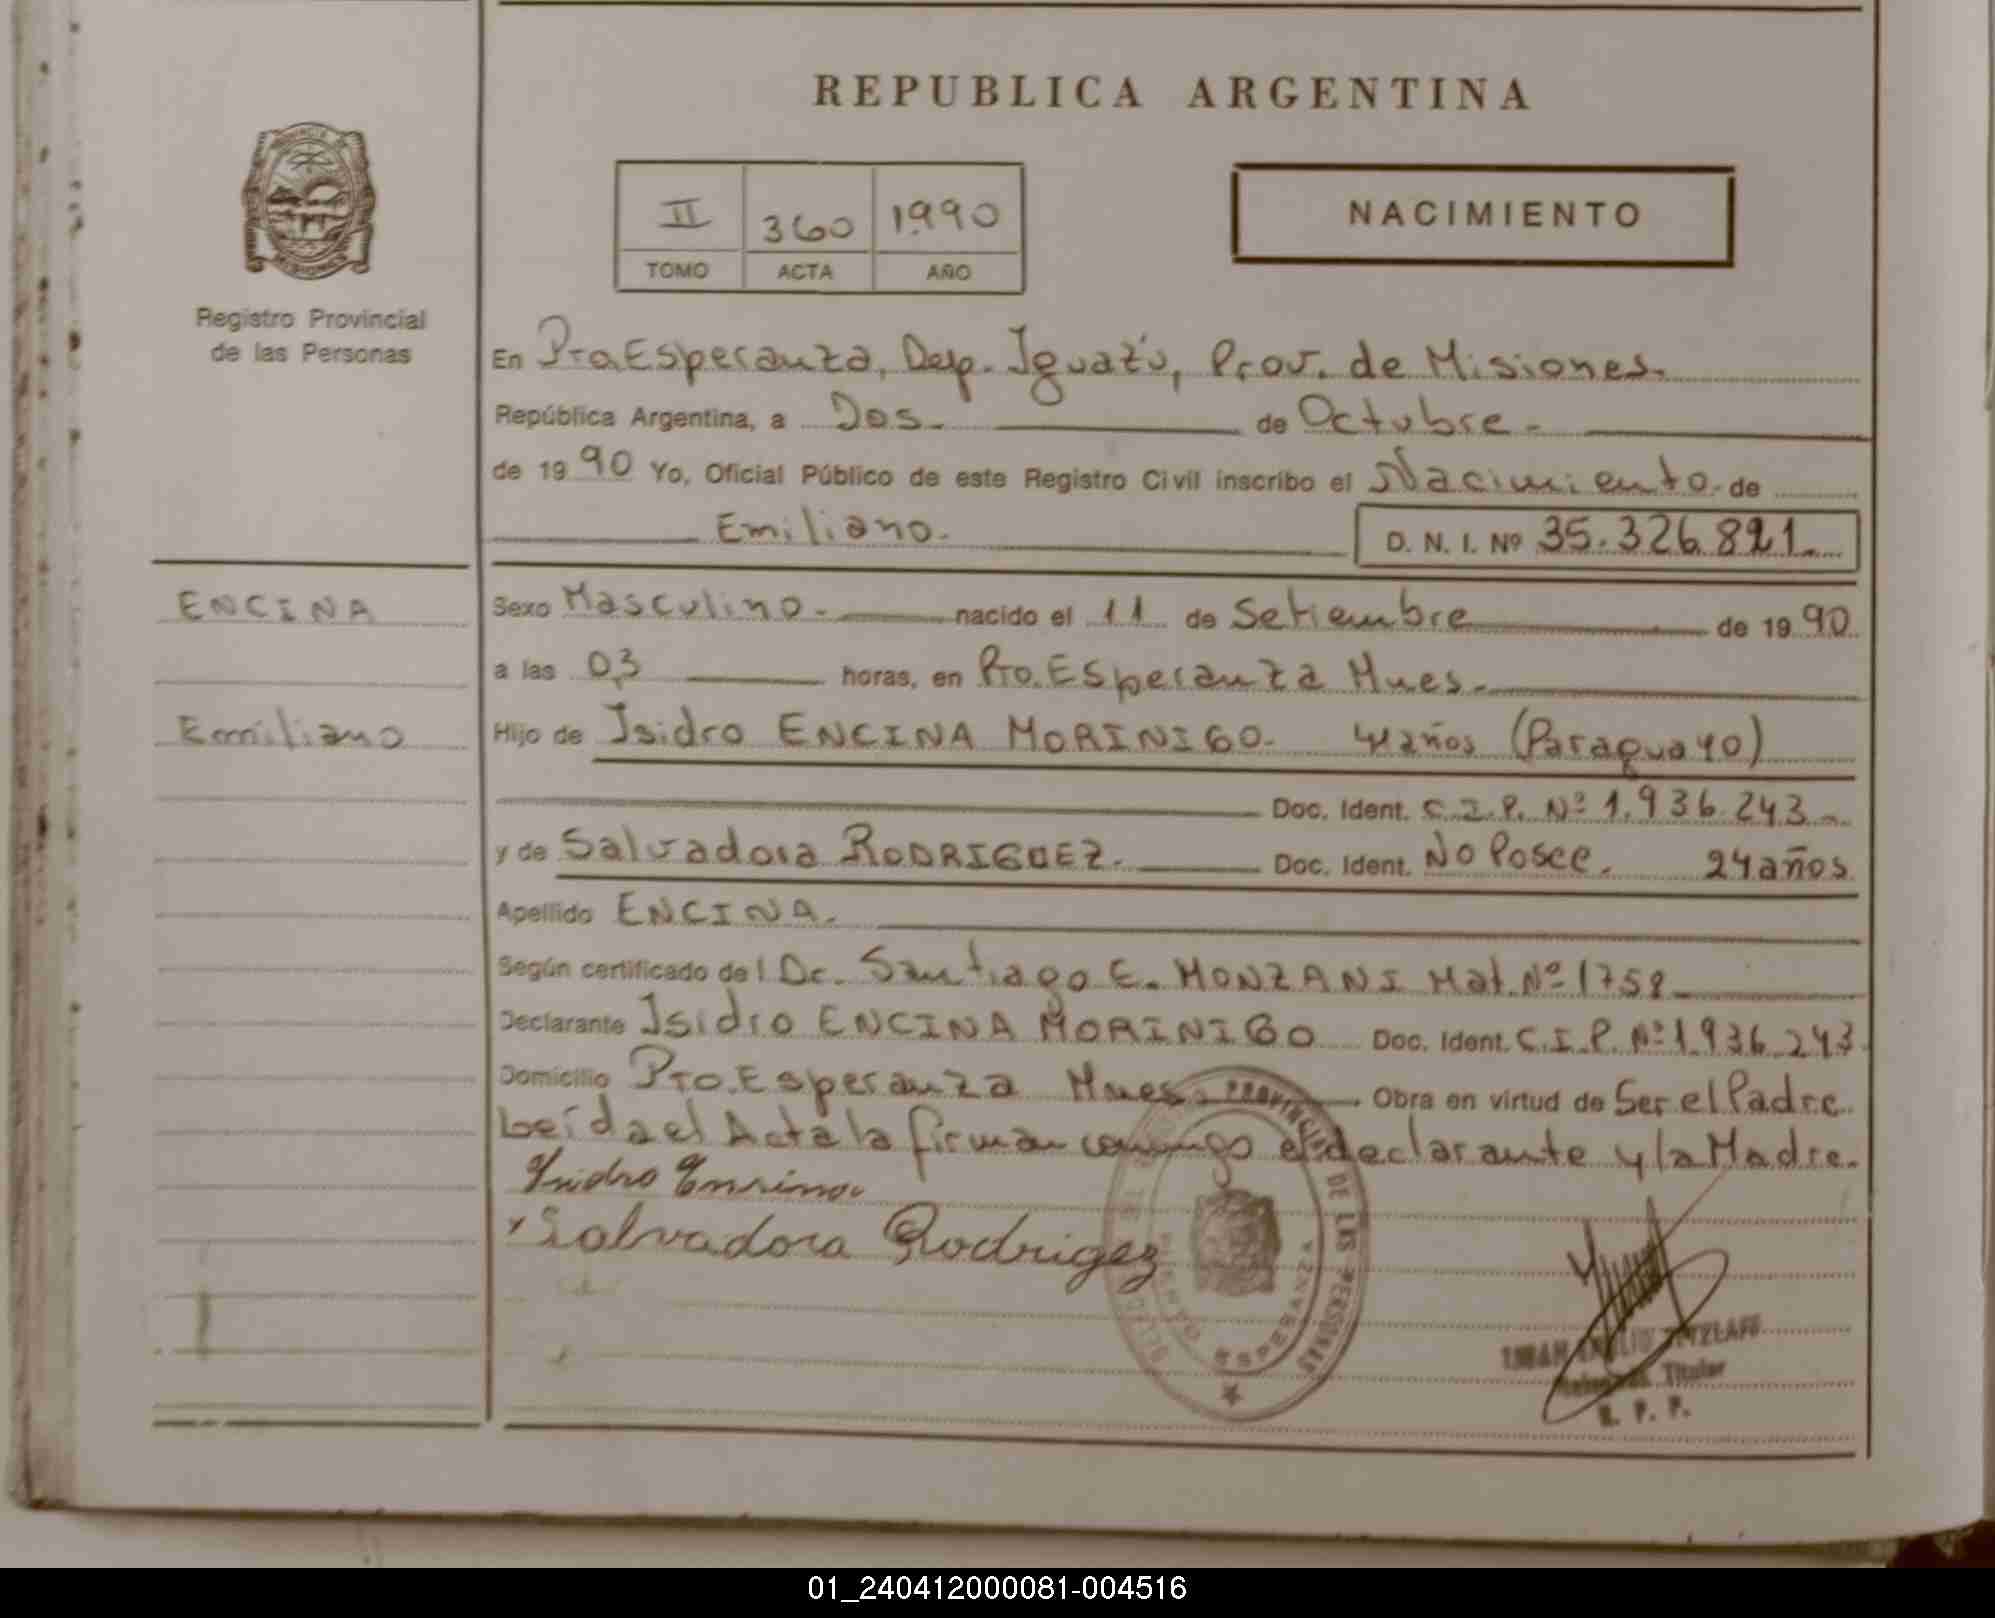 REPUBLICA ARGENTINA
PROVINCIA DE MISIONES
Registro Provincial
de las Personas
II 360 1990
TOMO ACTA AÑO
NACIMIENTO
En Pto. Esperanza, Dep. Iguazú, Prov. de Misiones.
República Argentina, a Dos. de Octubre.
de 1990 Yo, Oficial Público de este Registro Civil inscribo el Nacimiento de
Emiliano. D. N. I. Nº 35.326.821
ENCINA
Emiliano
Sexo Masculino. nacido el 11 de Setiembre de 1990
a las 03 horas, en Pto. Esperanza Mnes.
Hijo de Isidro ENCINA MORINIGO. 41 años (Paraguayo)
Doc. Ident. C.I.P. Nº 1.936.243
y de Salvadora RODRIGUEZ. Doc. Ident. No Posee. 24 años
Apellido ENCINA.
Según certificado del Dr. Santiago E. MONZANI Mat. Nº 1758
Declarante Isidro ENCINA MORINIGO Doc. Ident. C.I.P. Nº 1.936.243
Domicilio Pto. Esperanza Mnes. Obra en virtud de Ser el Padre
Leída el Acta la firman conmigo el declarante y la Madre.
Isidro Encina
Salvadora Rodrigez
PROVINCIAL DE LAS PERSONAS
PUERTO ESPERANZA
Titular
R. P. P.
01_240412000081-004516